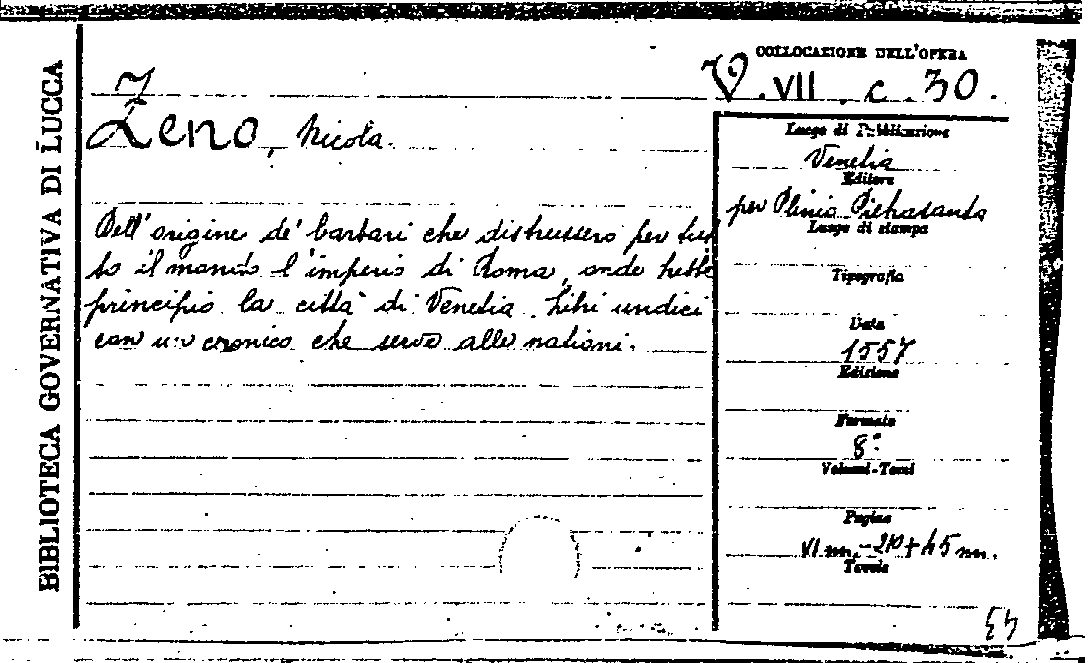 BIBLIOTECA GOVERNATIVA DI LUCCA
COLLOCAZIONE DELL'OPERA
V. VII. c. 30.
Z
Zeno, Nicola.
Dell'origine de' barbari che distrussero per tut
to il mondo l'imperio di Roma, onde hebbe
principio la città di Venetia. Libri undici
con un cronico che serve alle nationi.
Luogo di Pubblicazione
Venetia
Editore
per Plinio Pietrasanta
Luogo di stampa
Tipografia
Data
1557
Edizione
Formato
8°
Volumi-Tomi
Pagine
VI nn. - 210 + 45 nn.
Tavole